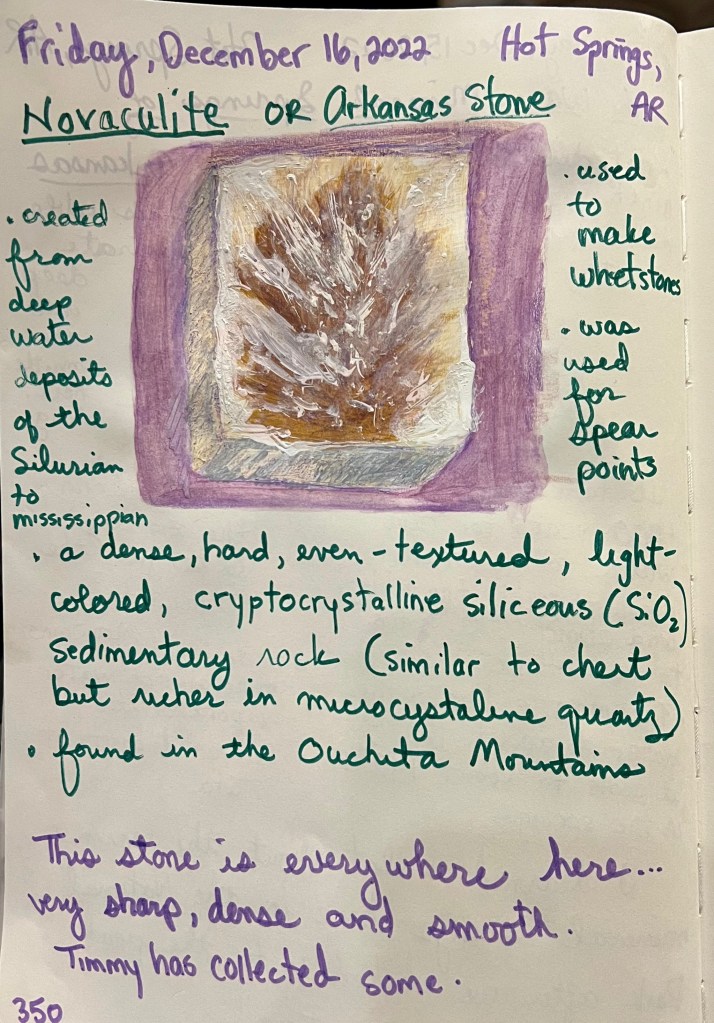 Friday, December 16, 2022 Hot Springs, AR
Novaculite OR Arkansas Stone
. created
from
deep
water
deposits
of the
Silurian
to
mississippian
. used
to
make
whetstones
. was
used
for
spear
points
. a dense, hard, even-textured, light-
colored, cryptocrystalline siliceous (SiO₂)
sedimentary rock (similar to chert
but richer in microcystaline quartz)
. found in the Ouchita Mountains
This stone is everywhere here...
very sharp, dense and smooth.
Timmy has collected some.
350